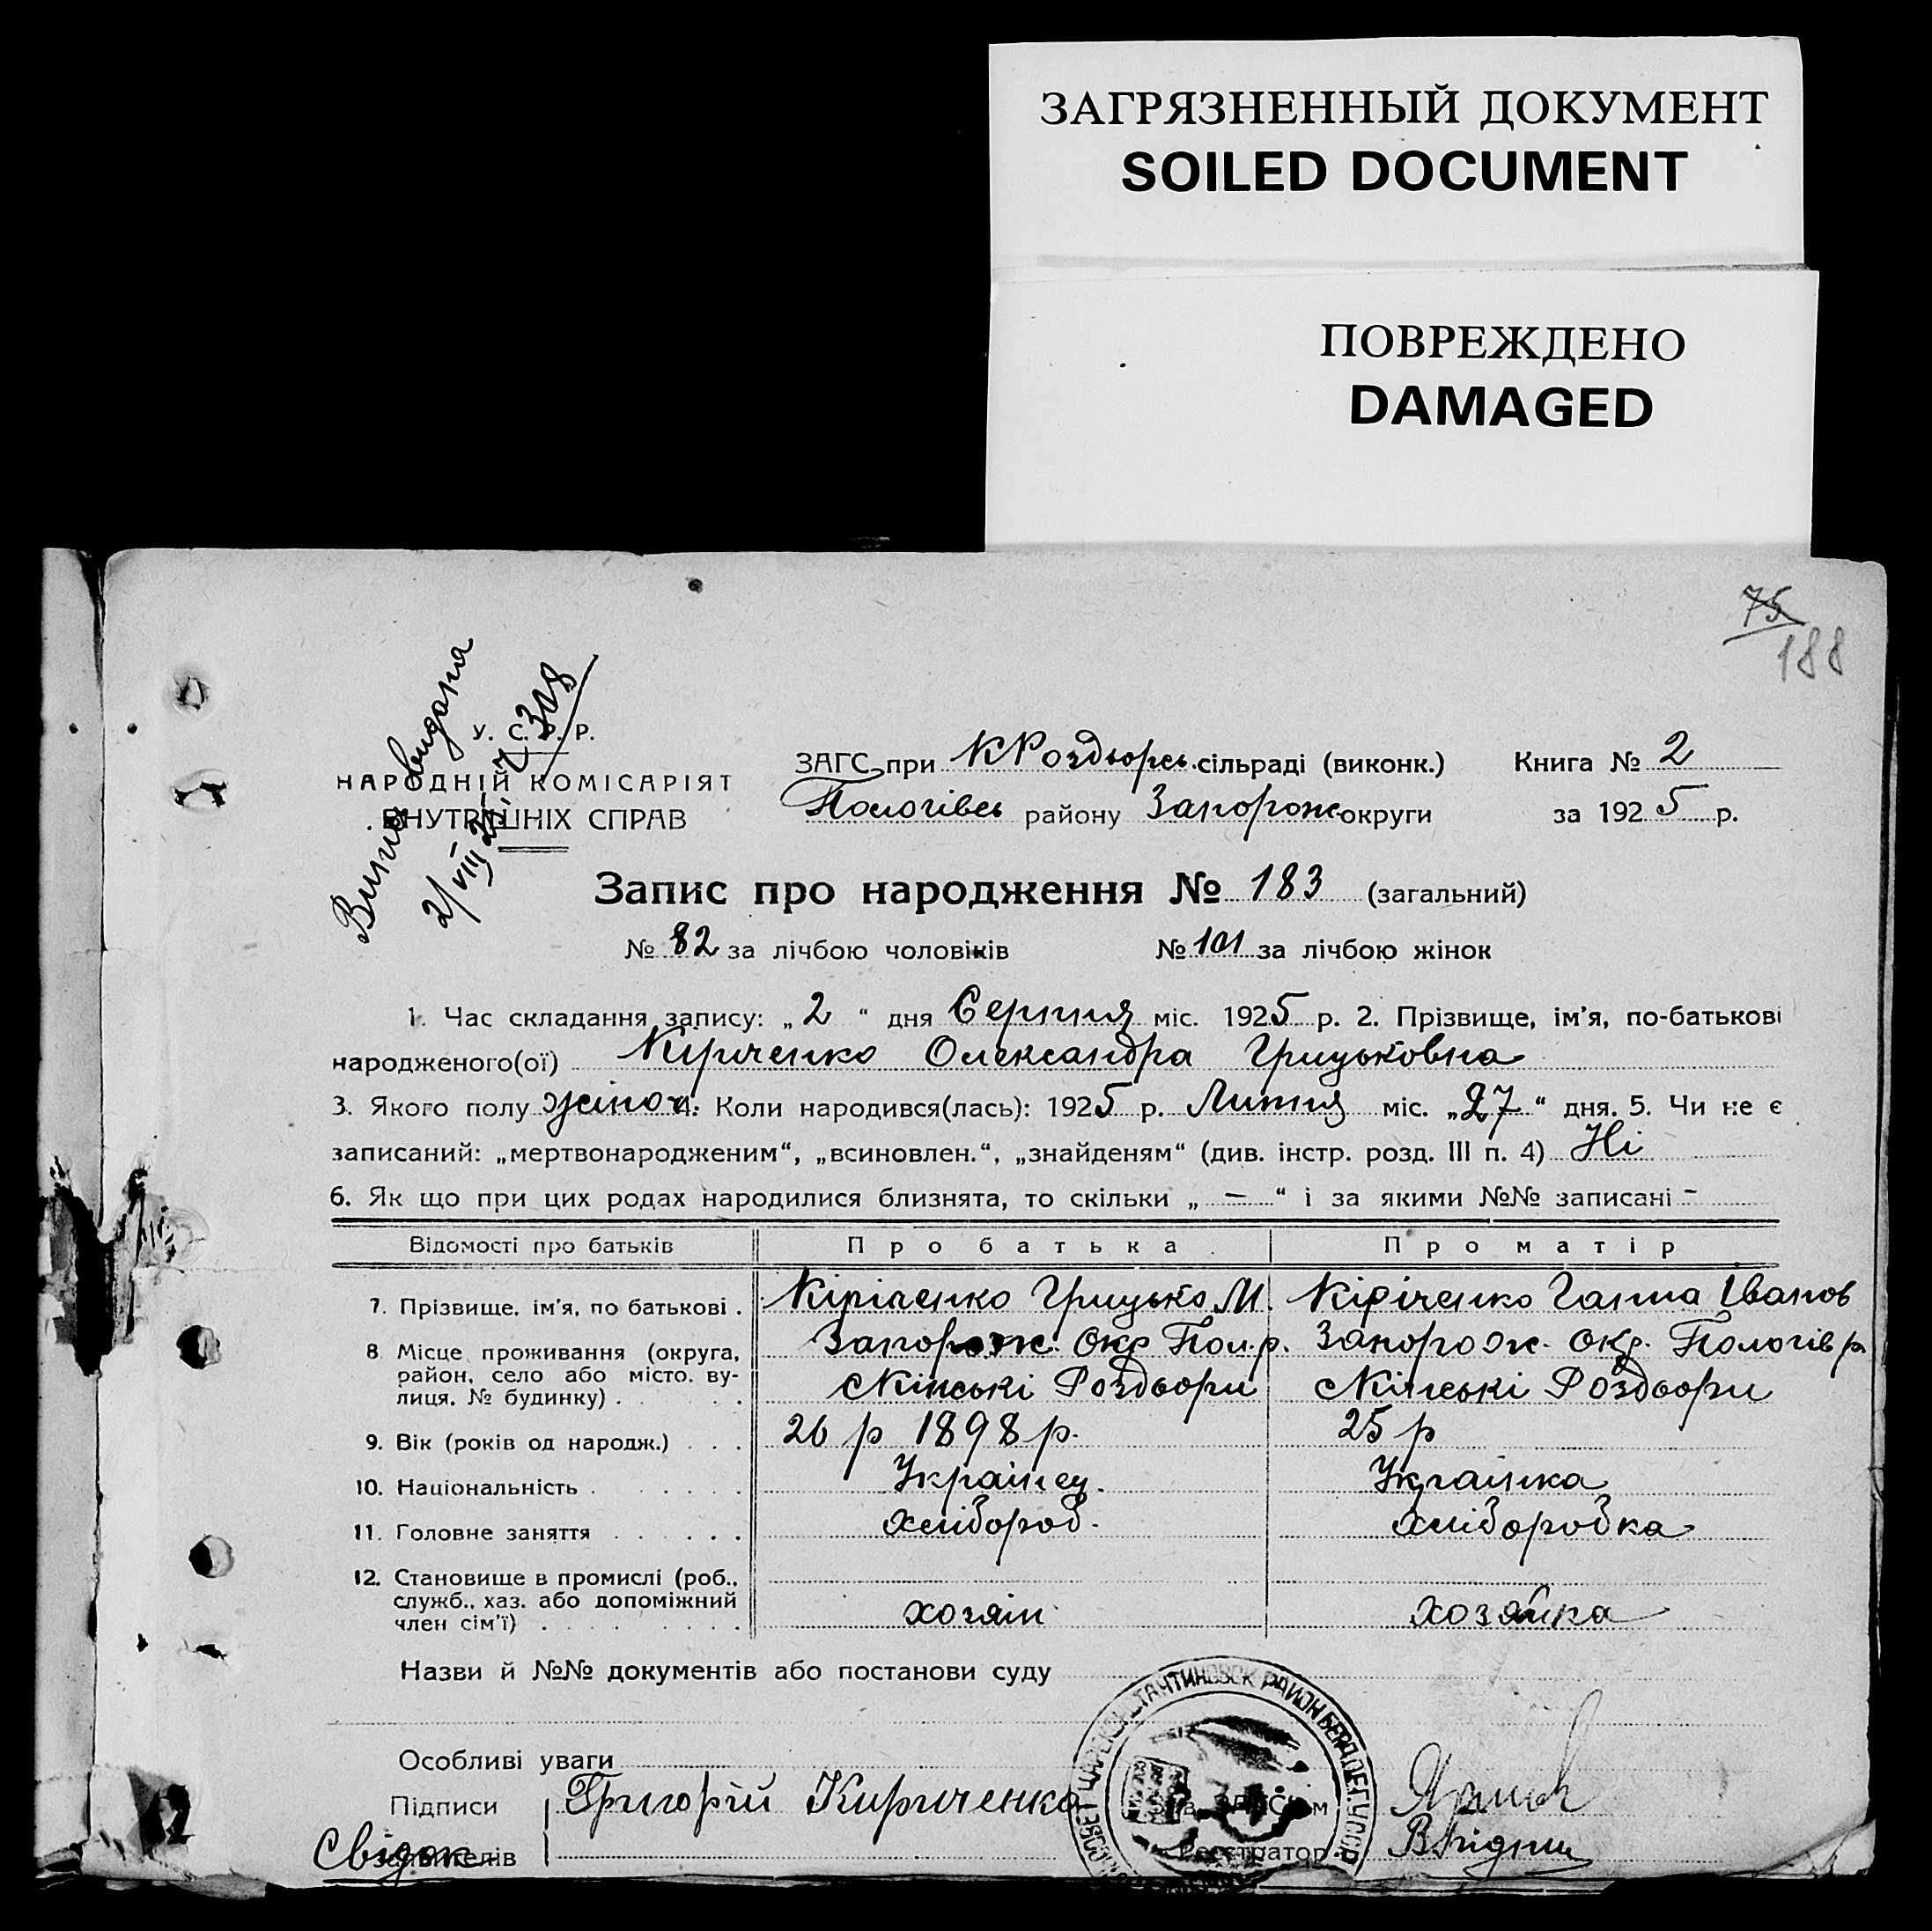 ЗАГРЯЗНЕННЫЙ ДОКУМЕНТ
SOILED DOCUMENT
ПОВРЕЖДЕНО
DAMAGED
75
188
Випис видана
2/VIII 25 308
У. С. Р. Р.
НАРОДНІЙ КОМІСАРІЯТ
ВНУТРІШНІХ СПРАВ
ЗАГС при К Роздорсь. сільраді (виконк.) Книга № 2
Пологівсь району Запорож округи за 1925 р.
Запис про народження № 183 (загальний)
№ 82 за лічбою чоловіків № 101 за лічбою жінок
1. Час складання запису: „2“ дня Серпня міс. 1925 р. 2. Прізвище, ім’я, по-батькові
народженого(ої) Кириченко Олександра Грицьковна
3. Якого полу жіноч. 4. Коли народився(лась): 1925 р. Липня міс. „27“ дня. 5. Чи не є
записаний: „мертвонародженим“, „всиновлен.“, „знайденям“ (див. інстр. розд. III п. 4) Ні
6. Як що при цих родах народилися близнята, то скільки „ — “ і за якими №№ записані -
Відомості про батьків Про батька Про матір
7. Прізвище, ім’я, по батькові . Кіріченко Грицько М. Кіріченко Ганна Іванов
8 Місце проживання (округа, район, село або місто, вулиця, № будинку) . Запорож. Окр Пол.р. Запорож. Окр. Пологів р
Кінські Роздори Кінські Роздори
9. Вік (років од народж.) . . . 26 р 1898 р. 25 р
10. Національність . Українец. Українка
11. Головне заняття . Хлібороб. Хліборобка
12. Становище в промислі (роб., служб., хаз. або допоміжний член сім’ї) . хозяін хозяйка
Назви й №№ документів або постанови суду
Особливі уваги
Підписи Григорій Кириченко
Свідок
Реєстратор